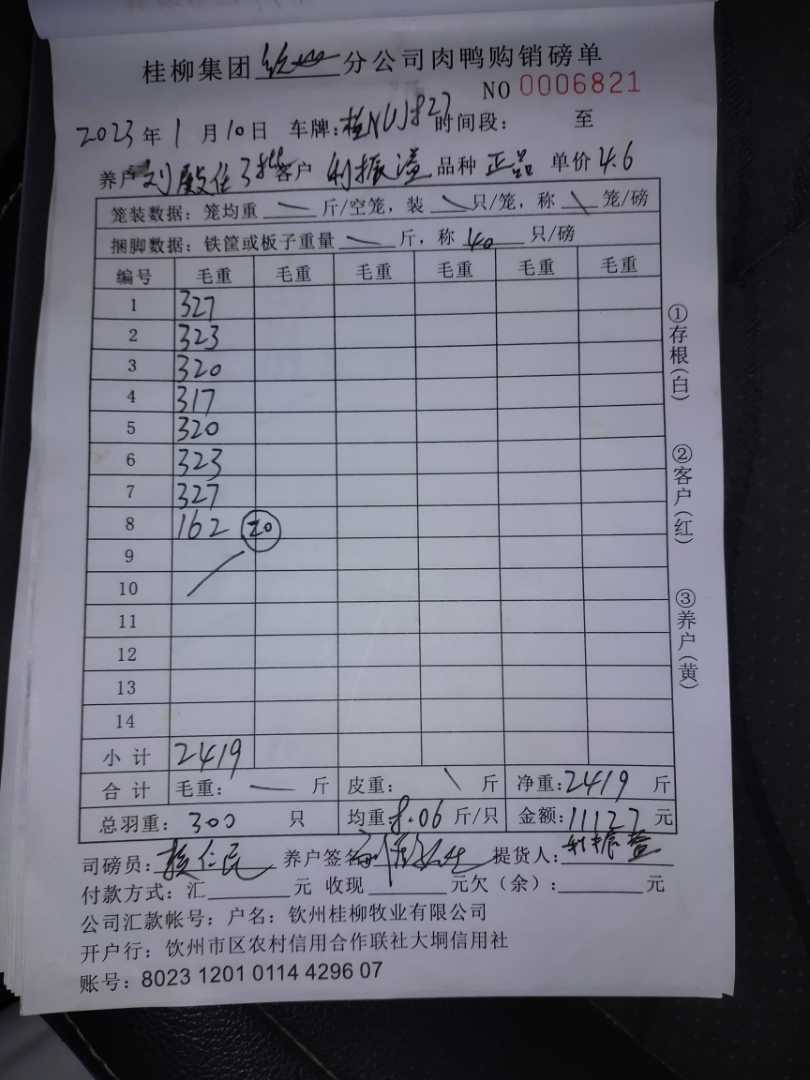 桂柳集团 分公司肉鸭购销磅单
NO 0006821
2023年1月10日 车牌:桂NUJ827 时间段: 至
养户 刘殿任 3批 客户 利振溢 品种 正品 单价 4.6
笼装数据：笼均重 斤/空笼，装 只/笼，称 笼/磅
捆脚数据：铁筐或板子重量 斤，称 40 只/磅
编号 毛重 毛重 毛重 毛重 毛重 毛重
1 327
2 323
3 320
4 317
5 320
6 323
7 327
8 162 20
9
10
11
12
13
14
小计 2419
合计 毛重: 斤 皮重: 斤 净重:2419 斤
总羽重: 300 只 均重:8.06 斤/只 金额:11127 元
司磅员: 养户签名 提货人:
付款方式：汇 元 收现 元欠（余）: 元
公司汇款帐号：户名：钦州桂柳牧业有限公司
开户行：饮州市区农村信用合作联社大垌信用社
账号：8023 1201 0114 4296 07
①存根(白)
②客户(红)
③养户(黄)